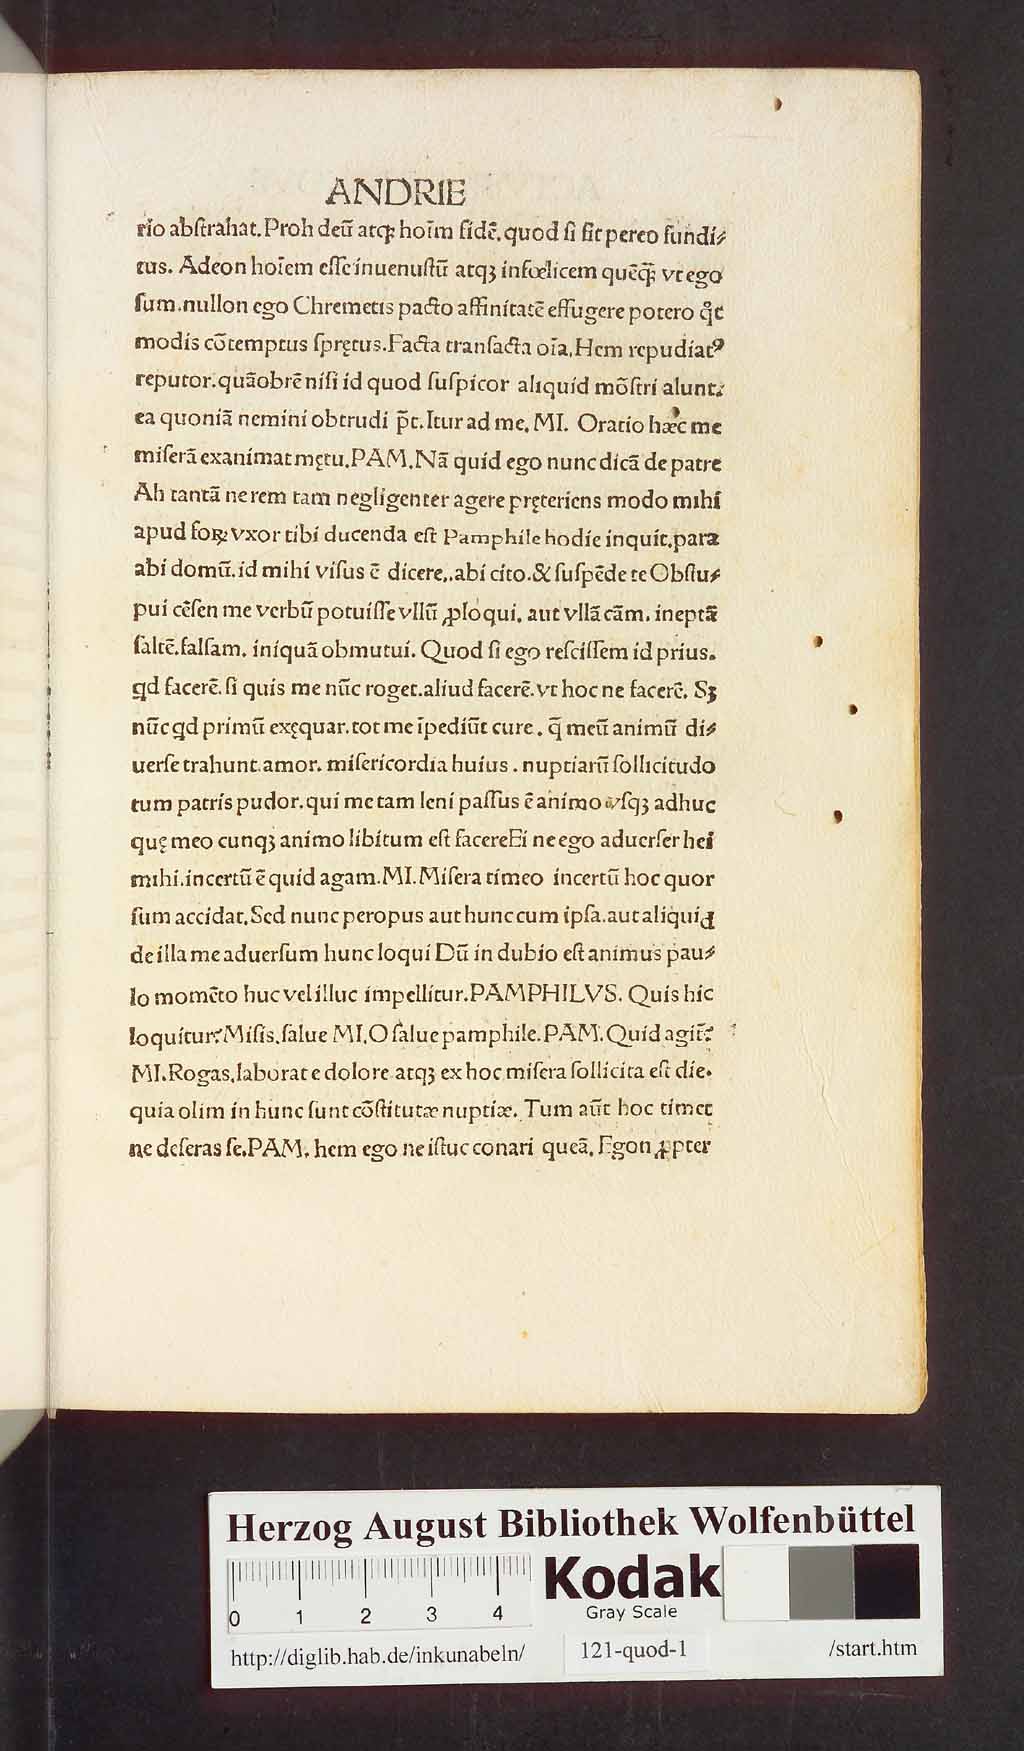 ANDRIE
rio abſtrahat. Proh deū atqꝫ hoīm fidē. quod ſi fit pereo fundi⸗
tus. Adeon hoīem eſſe inuenuſtū atqꝫ infœlicem quēꝙ̃ vt ego
ſum. nullon ego Chremetis pacto affinitatē effugere potero qͦt
modis cōtemptus ſprętus. Facta tranſacta oīa. Hem repudiatꝰ
reputor. quāobrē niſi id quod ſuſpicor aliquid mōſtri alunt.
ea quoniā nemini obtrudi p̄t. Itur ad me. MI. Oratio hæc me
miſerā exanimat mętu. PAM. Nā quid ego nunc dicā de patre
Ah tantā ne rem tam negligenter agere pręteriens modo mihi
apud foꝝ vxor tibi ducenda eſt Pamphile hodie inquit. para
abi domū. id mihi viſus ē dicere,. abi cito. & ſuſpēde te Obſtu⸗
pui cēſen me verbū potuiſſe vllū ꝓloqui. aut vllā cām. ineptā
ſaltē. falſam. iniquā obmutui. Quod ſi ego reſciſſem id prius.
qd facerē. ſi quis me nūc roget. aliud facerē. vt hoc ne facerē. Sꝫ
nūc qd primū exęquar. tot me īpediūt cure. q̄ meū animū di⸗
uerſe trahunt. amor. miſericordia huius. nuptiarū ſollicitudo
tum patris pudor. qui me tam leni paſſus ē animo vſqꝫ adhuc
quę meo cunqꝫ animo libitum eſt facereEi ne ego aduerſer hei
mihi. incertū ē quid agam. MI. Miſera timeo incertū hoc quor
ſum accidat. Sed nunc peropus aut hunc cum ipſa. aut aliquid
de illa me aduerſum hunc loqui Dū in dubio eſt animus pau⸗
lo momēto huc vel illuc impellitur. PAMPHILVS. Quis hic
loquitur? Miſis. ſalue MI. O ſalue pamphile. PAM. Quid agit̄?
MI. Rogas. laborat e dolore atqꝫ ex hoc miſera ſollicita eſt die.
quia olim in hunc ſunt cōſtitutæ nuptiæ. Tum aūt hoc timet
ne deſeras ſe. PAM. hem ego ne iſtuc conari queā. Egon ꝓpter
Herzog August Bibliothek Wolfenbüttel
0 1 2 3 4
Kodak
Gray Scale
http://diglib.hab.de/inkunabeln/ 121-quod-1 /start.htm